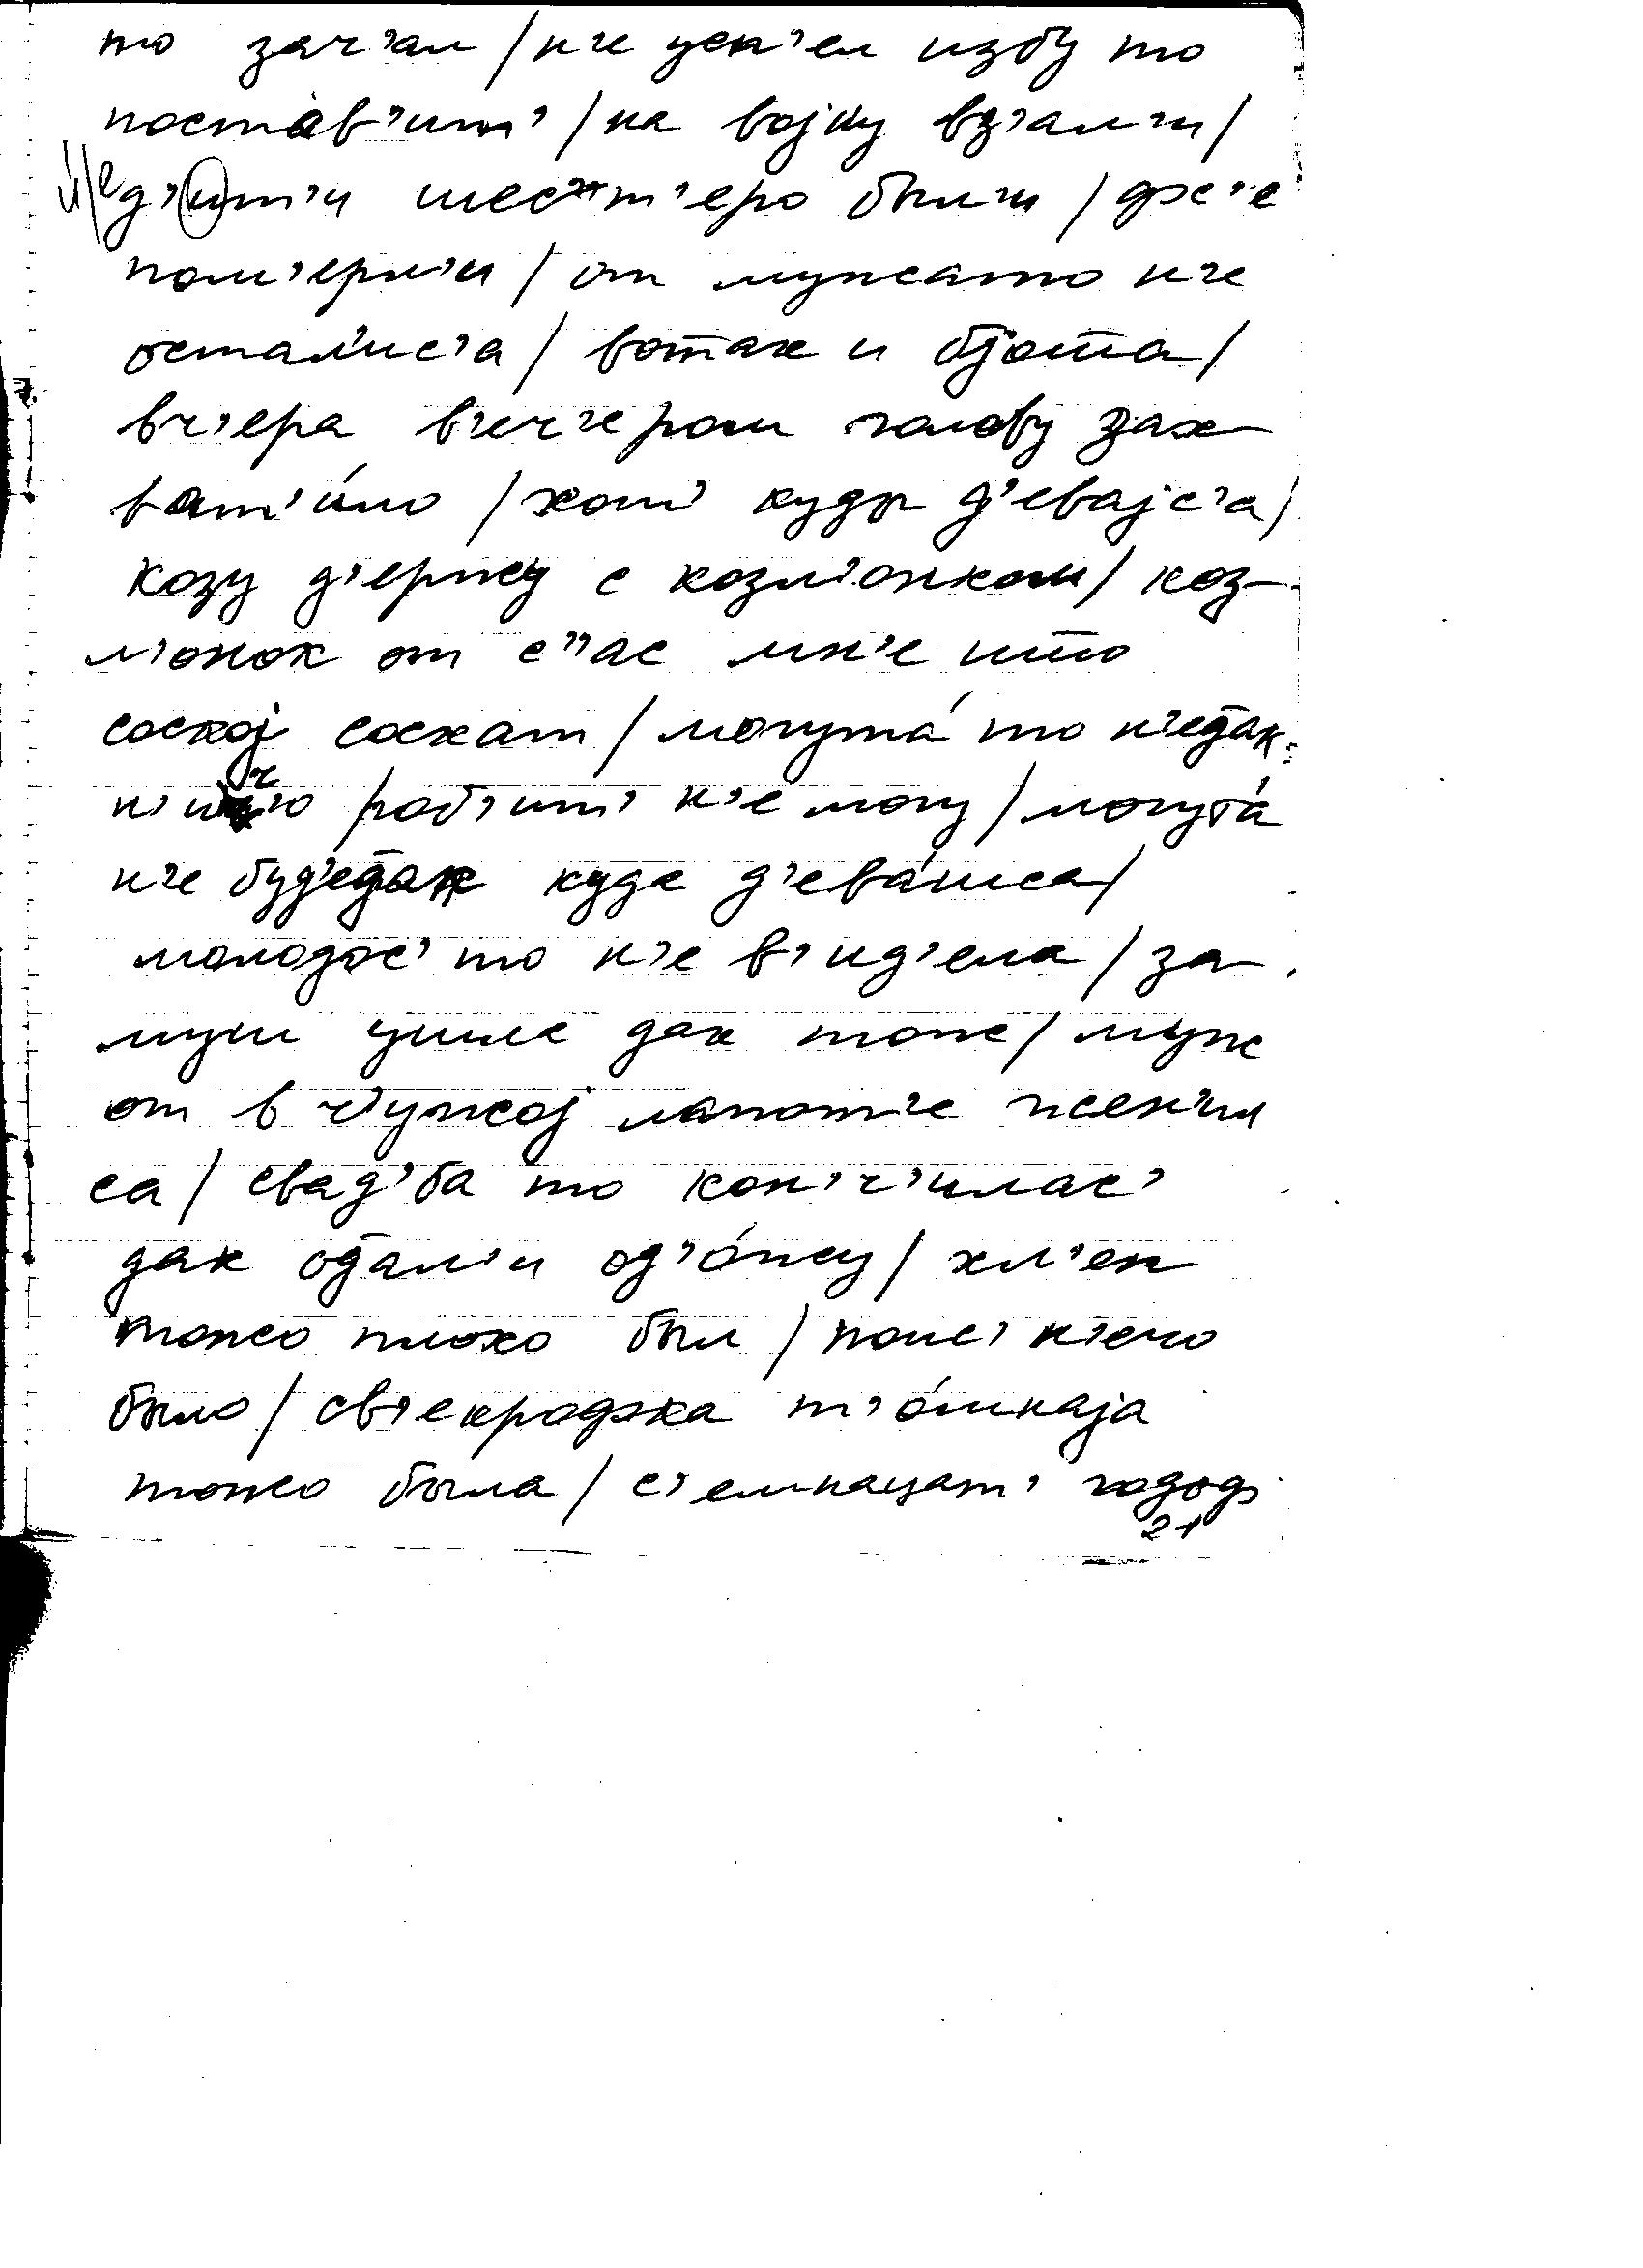 то зач'ал / н'е усп'ел избу то
постав'ит' / на војну вз'ал'и /
д'ит'и шест'еро был'и / фс'е
пом'ерл'и / от мужато н'е
остал'ис'а / вотак и бјота /
вч'ера в'еч'ером голову зах-
ват'и́ло / хот' куды д'евајс'а /
козу д'ержу с козл'онком / коз-
л'онок от с''ас мн'е што
соској соскат / могута́ то н'едак
н'ич'о роб'ит' н'е могу / могута́
н'е буд'едак куда д'ева́шса /
молодос' то н'е в'ид'ела / за-
муш ушла дак тоже / муж
от в ч'ужој лапот'е жен'ил
са / свад'ба то кон'ч'илас'
дак одал'и од'о́жу / хл'еп
тожо плохо был / пойес' н'ечо
было / св'екрофка т'о́мнаја
тожо была / с'емнацат' годоф
21